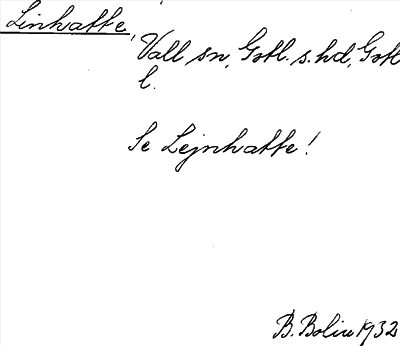 Linhatte,
Vall sn, Gotl. s. hd, Gotl
l.
Se Lejnhatte!
B. Bolin 1932